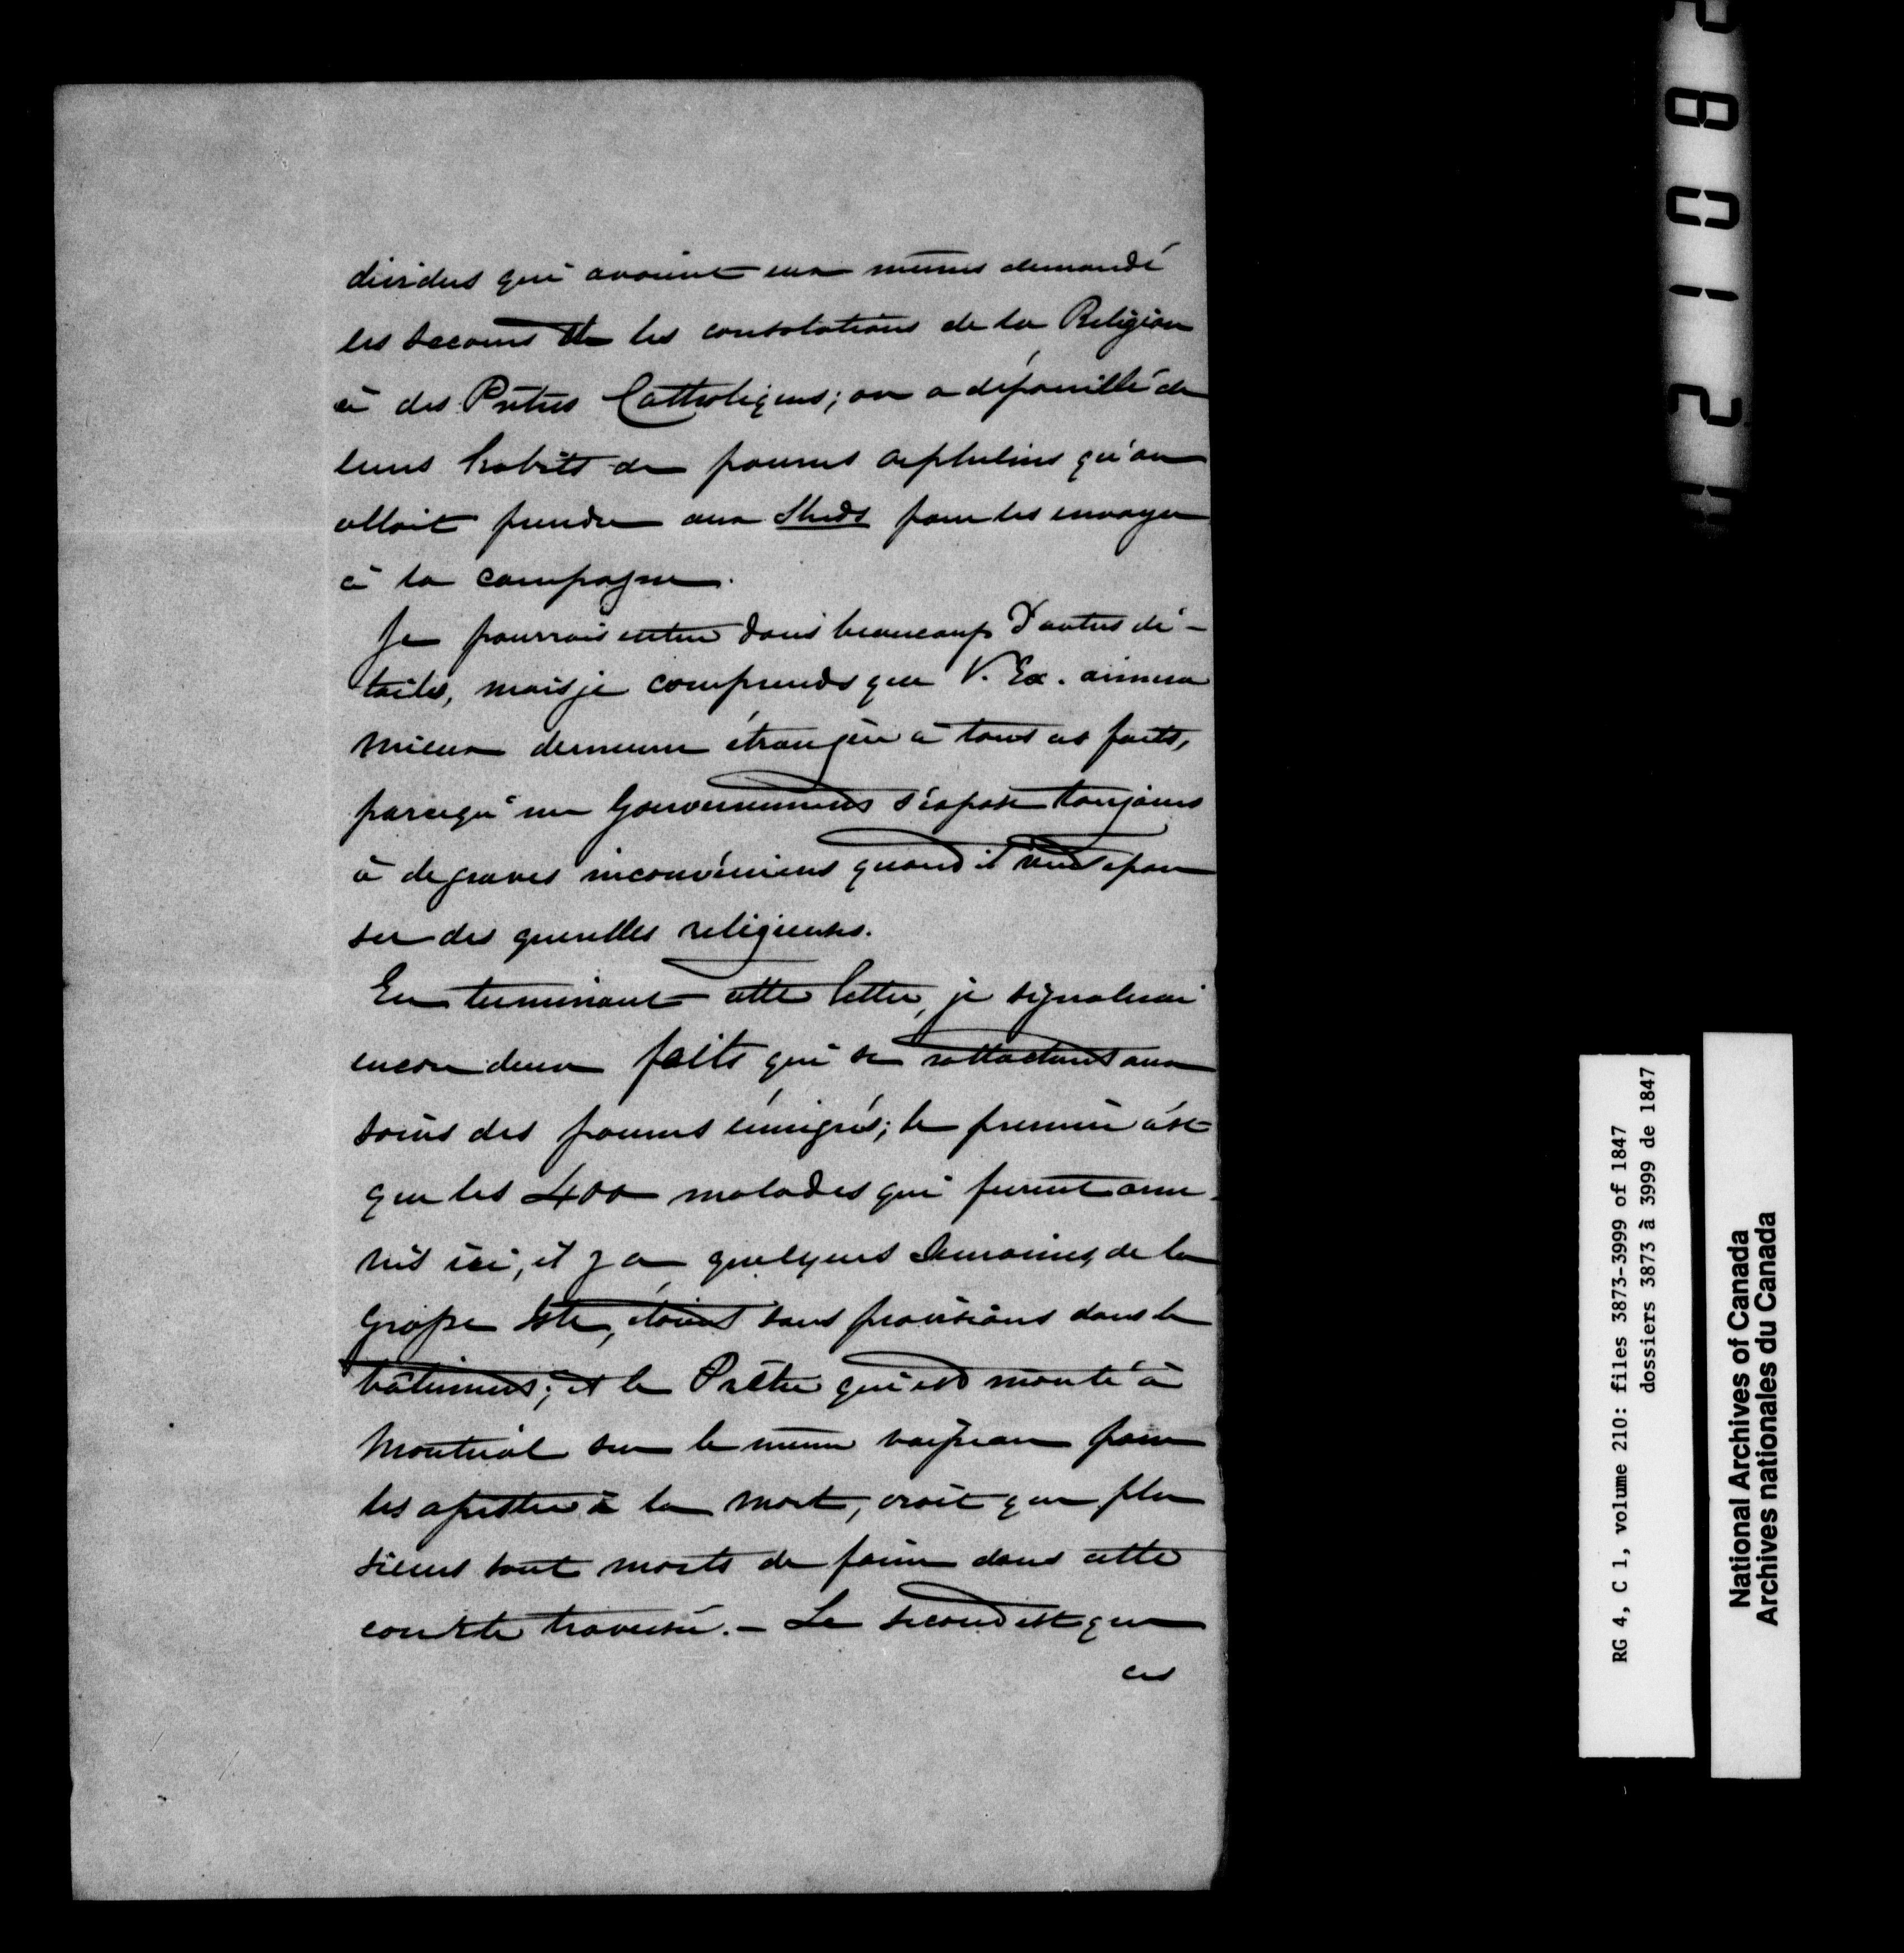 dividus qui avoient eux mêmes demandé
les secours et les consolations de la Religion
à des Prêtres Catholiques; on a dépouillé de
leurs habits de pauvres orphelins qu'on
alloit prendre aux Sheds pour les envoyer
à la campagne.
Je pourrois entrer dans beaucoup d'autres dé-
tails, mais je comprends que V. Ex. aimera
mieux demeurer étrangère à tous ces faits,
parcequ'un Gouvernement s'expose toujours
à de graves inconvéniens quand il veut épou
ser des querelles religieuses.
En terminant cette lettre, je signalerai
encore deux faits qui se rattachent aux
soins des pauvres émigrés; le premier c'est
que les 400 malades qui furent ame-
nés ici, il y a quelques semaines, de la
Grosse Isle, étoient sans provisions dans le
bâtiment; et le Prêtre qui est monté à
Montréal sur le même vaisseau pour
les assister à la mort, croit que plu
sieurs sont morts de faim dans cette
courte traversée. – Le second est que
ces
21082
RG 4, C 1, volume 210: files 3873-3999 of 1847
dossiers 3873 à 3999 de 1847
National Archives of Canada
Archives nationales du Canada